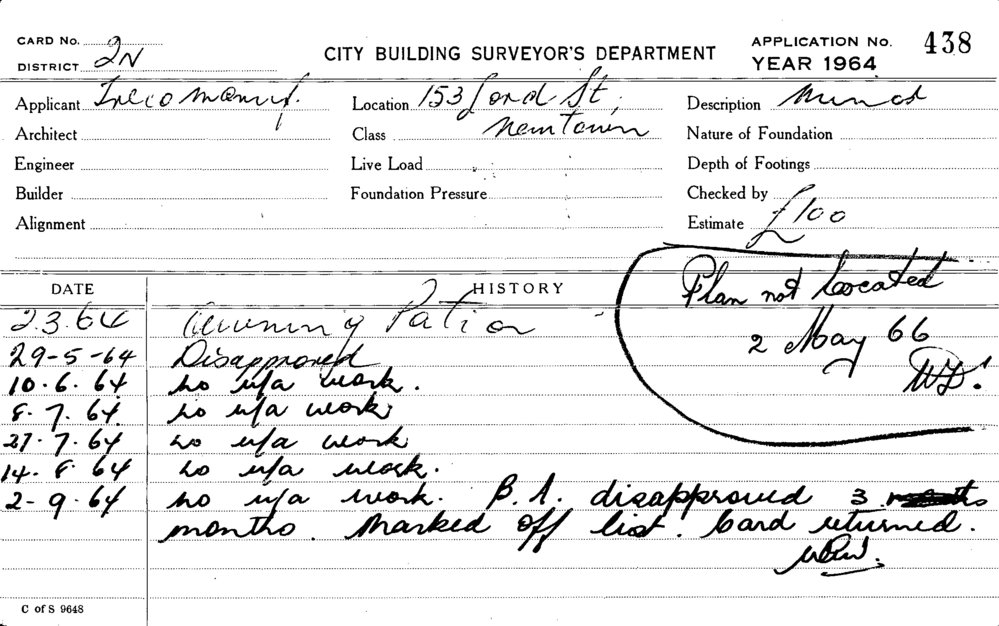 CARD No. 2N
DISTRICT
CITY BUILDING SURVEYOR'S DEPARTMENT
APPLICATION No. 438
YEAR 1964
Applicant Manuf.
Location 153 Lord St,
Description
Architect
Class Newtown
Nature of Foundation
Engineer
Live Load
Depth of Footings
Builder
Foundation Pressure
Checked by
Alignment
Estimate £100
Plan not Located
2 May 66
DATE HISTORY
2.3.64 Awning Patio
29-5-64 Disapproved
10.6.64 no u/a work.
8.7.64. no u/a work.
27.7.64 no u/a work
14.8.64 no u/a work.
2-9-64 no u/a work. B.A. disapproved 3
months. Marked off list. Card returned.
C of S 9648